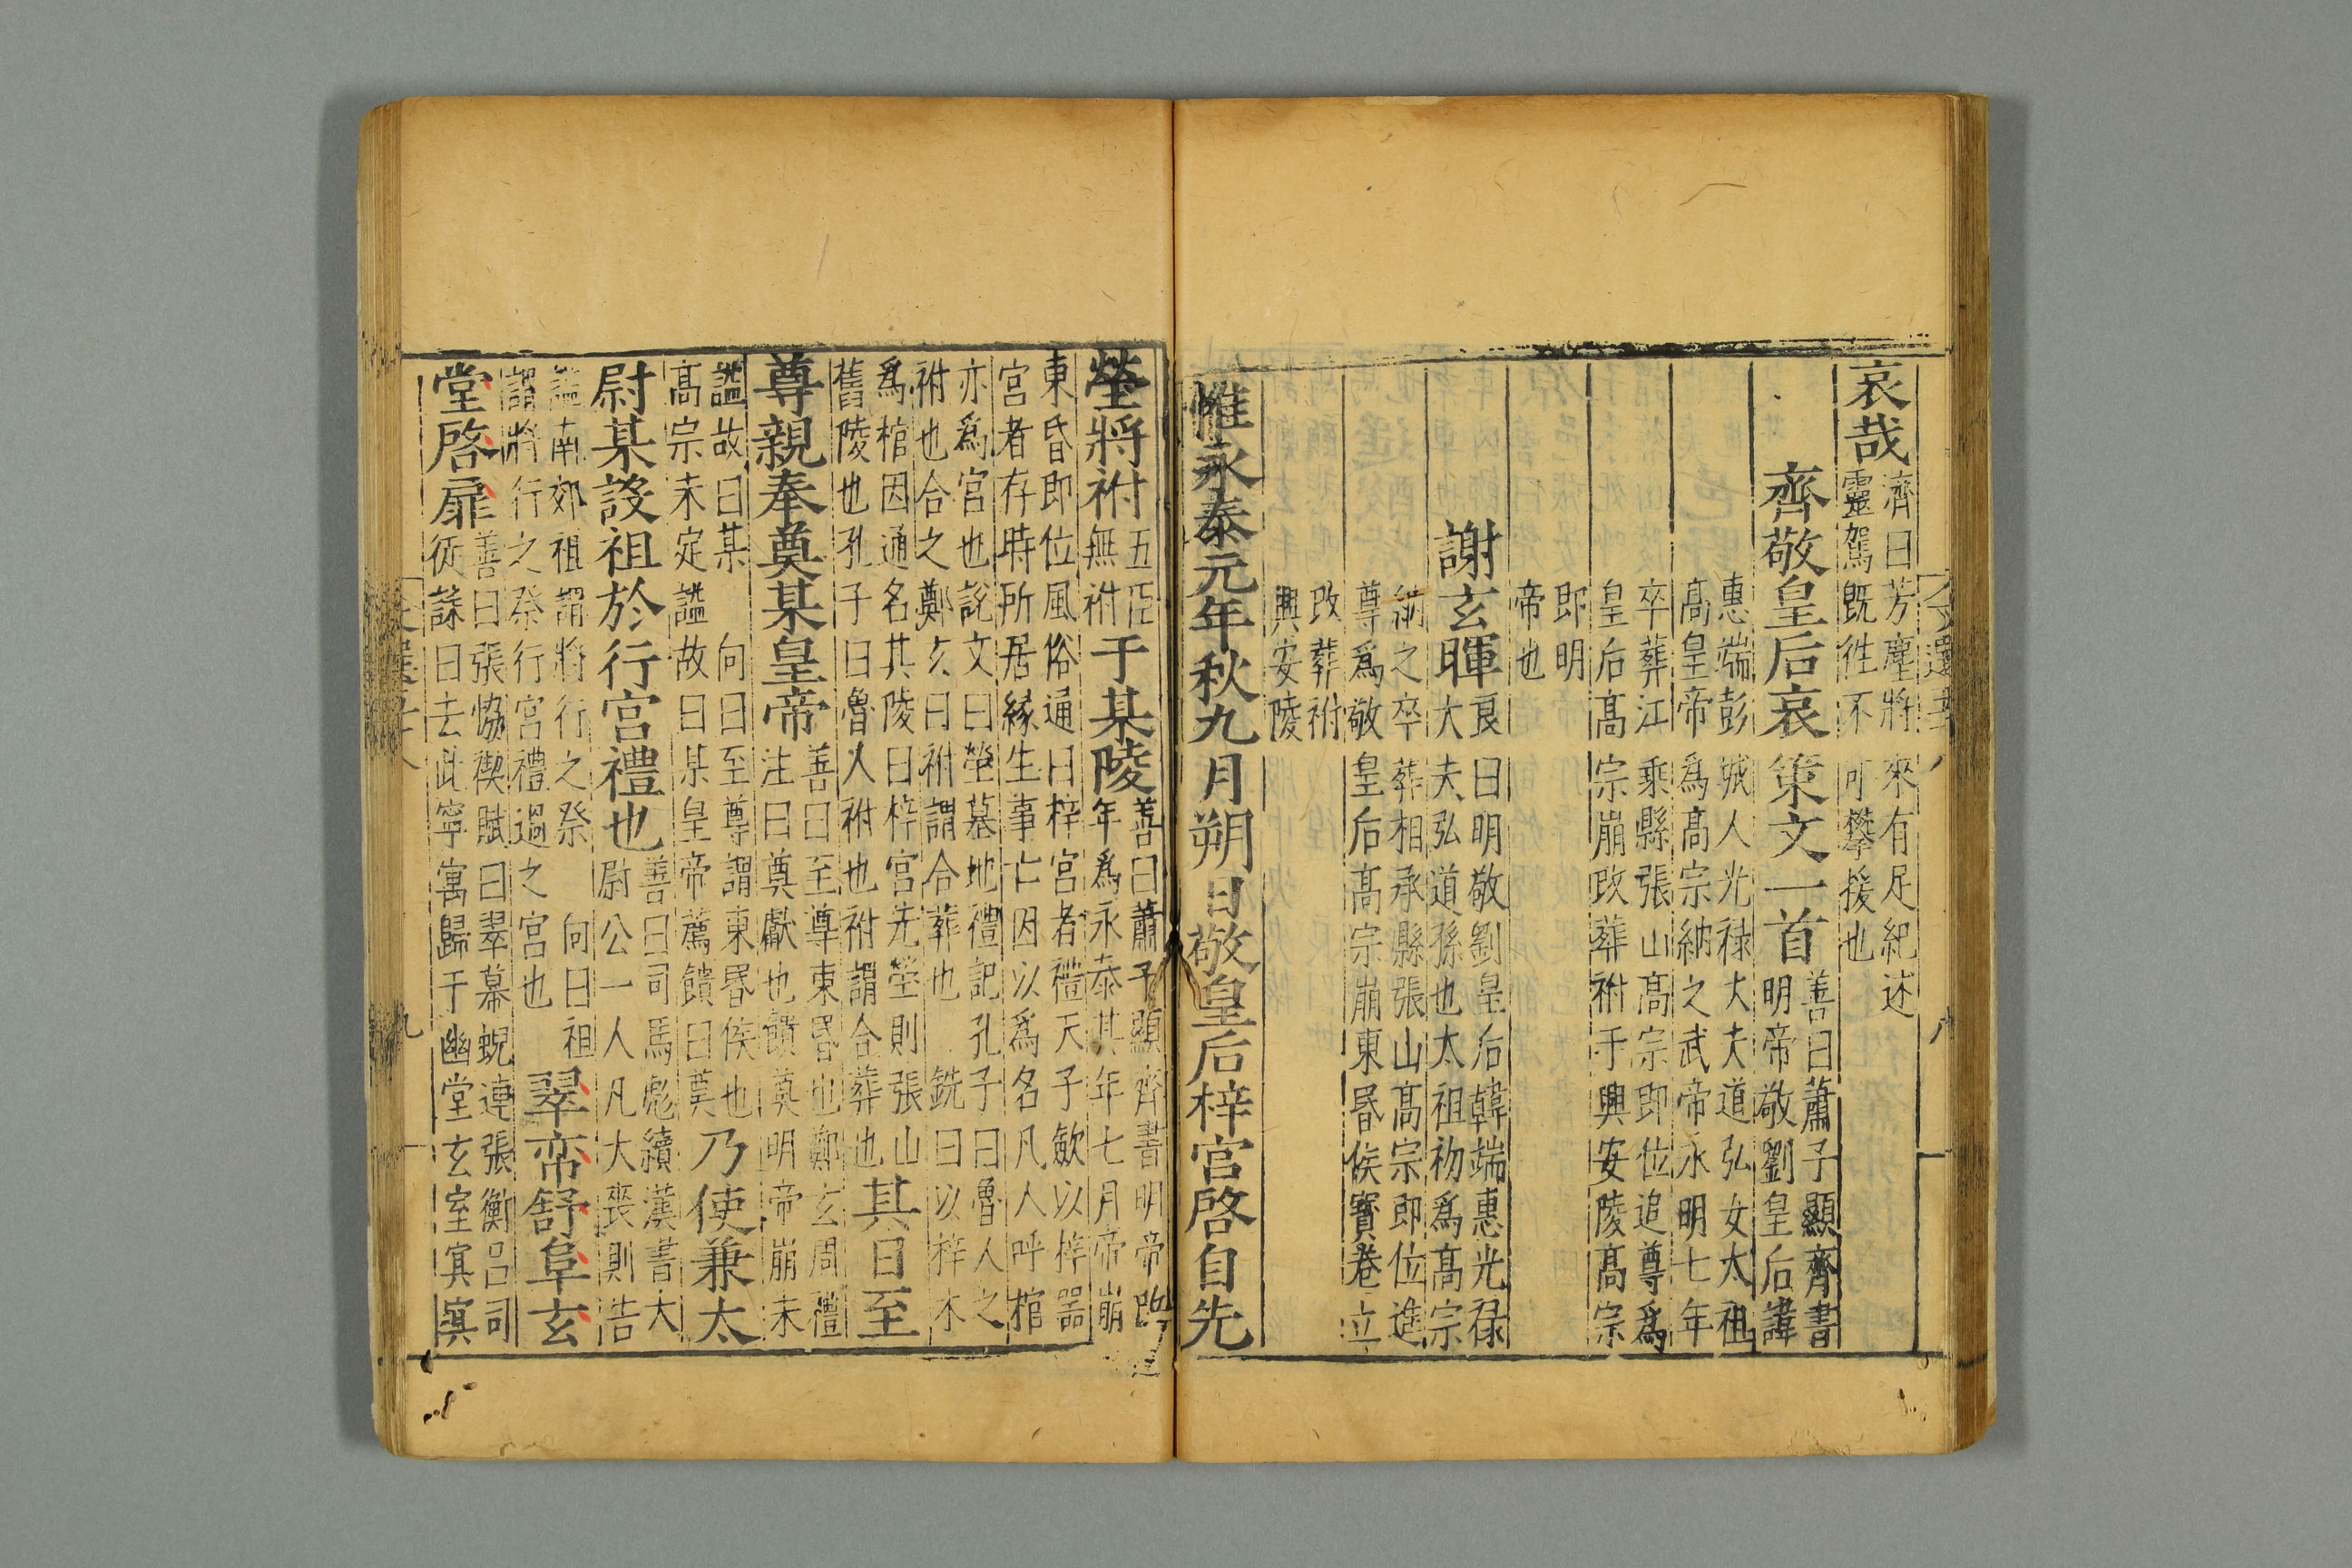 哀哉
濟曰芳塵將來有足紀述
靈駕既徃不可攀援也
齊敬皇后哀策文一首
善曰蕭子顯齊書
明帝敬劉皇后諱
惠端彭城人光祿大夫道弘女太祖
高皇帝為高宗納之武帝永明七年
卒葬江乘縣張山高宗即位追尊爲
皇后高宗崩改葬祔于興安陵高宗
即明
帝也
謝玄暉
良曰明敬劉皇后韓端惠光祿
大夫弘道孫也太祖初爲高宗
納之卒葬相承縣張山高宗即位進
尊爲敬皇后高宗崩東昬侯寳卷立
改葬祔
興安陵
惟永泰元年秋九月朔日敬皇后梓宫啓自先
塋將祔
五臣
無祔
于某陵
善曰蕭子顯齊書明帝
年爲永泰其年七月帝崩
東昏即位風俗通曰梓宫者禮天子歛以梓器
宫者存時所居緣生事亡因以爲名凡人呼棺
亦爲宫也說文曰塋墓地禮記孔子曰魯人之
祔也合之鄭玄曰祔謂合葬也
銑曰以梓木
爲棺因通名其陵曰梓宫先塋則張山
舊陵也孔子曰魯人祔也祔謂合葬也
其日至
尊親奉奠某皇帝
善曰至尊東昬也鄭玄周禮
注曰奠獻也饋奠明帝崩未
謚故曰某
向曰至尊謂東昬侯也
高宗未定謚故曰某皇帝薦饋曰奠
乃使兼太
尉某設祖於行宫禮也
善曰司馬彪續漢書大
尉公一人凡大喪則告
謚南郊祖謂將行之祭
向曰祖
謂將行之祭行宫禮過之宫也
翠帟舒阜玄
堂啓扉
善曰張恊禊賦曰翠幕蜺連張衡吕司
徒誄曰去此寧寓歸于幽堂玄室冥冥